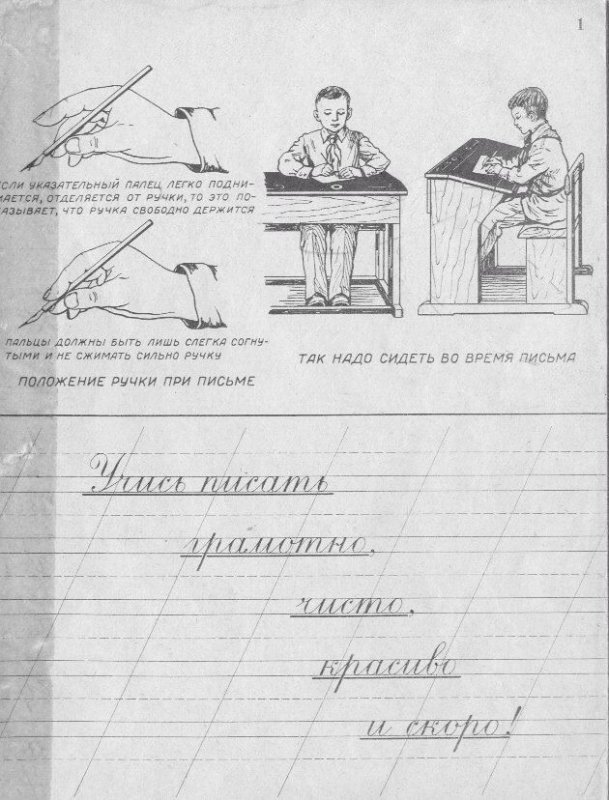 1
ЕСЛИ УКАЗАТЕЛЬНЫЙ ПАЛЕЦ ЛЕГКО ПОДНИ-
МАЕТСЯ, ОТДЕЛЯЕТСЯ ОТ РУЧКИ, ТО ЭТО ПО-
КАЗЫВАЕТ, ЧТО РУЧКА СВОБОДНО ДЕРЖИТСЯ
ПАЛЬЦЫ ДОЛЖНЫ БЫТЬ ЛИШЬ СЛЕГКА СОГНУ-
ТЫМИ И НЕ СЖИМАТЬ СИЛЬНО РУЧКУ
ПОЛОЖЕНИЕ РУЧКИ ПРИ ПИСЬМЕ
ТАК НАДО СИДЕТЬ ВО ВРЕМЯ ПИСЬМА
Учись писать
грамотно,
чисто,
красиво
и скоро!